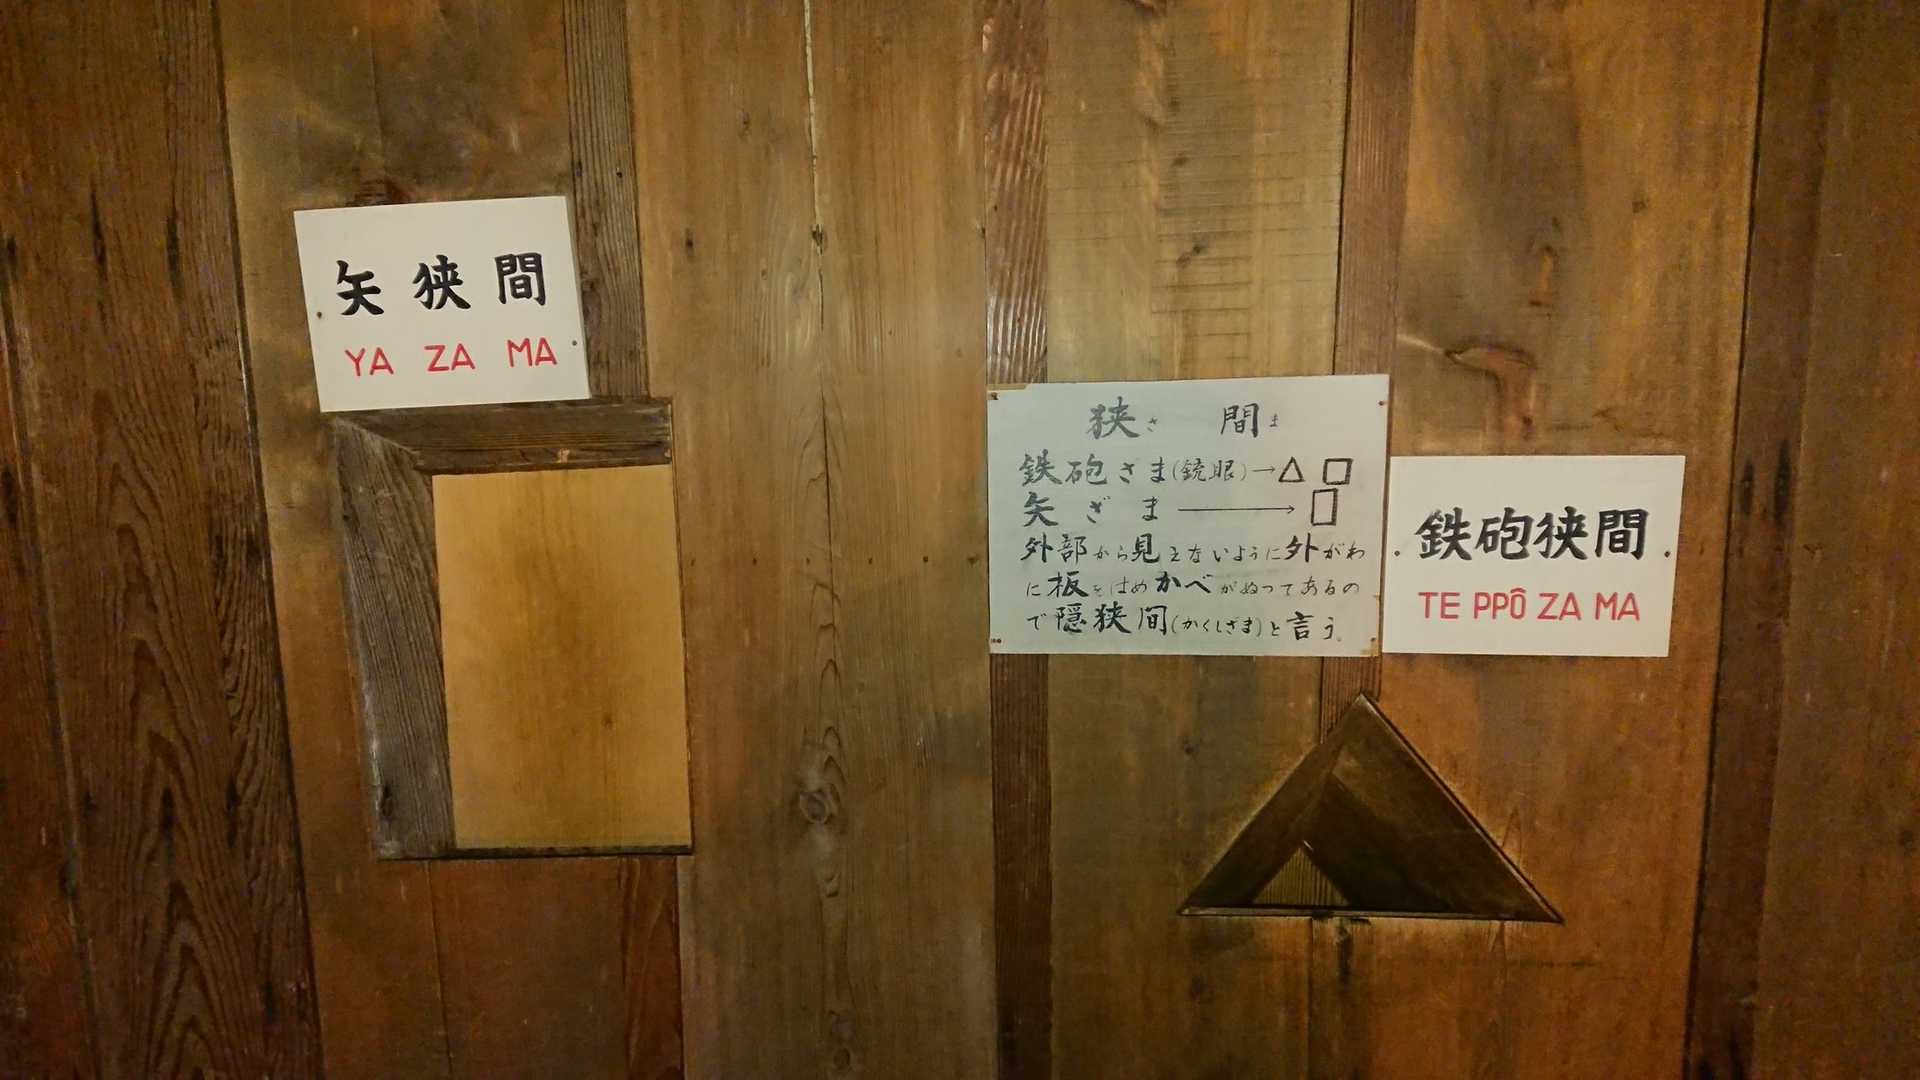 矢狭間
YA ZA MA
狭さ 間ま
鉄砲ざま(銃眼)→△ □
矢ざま→▯
外部から見えないように外がわ
に板をはめかべがぬってあるの
で隠狭間(かくしざま)と言う。
鉄砲狭間
TE PPÔ ZA MA